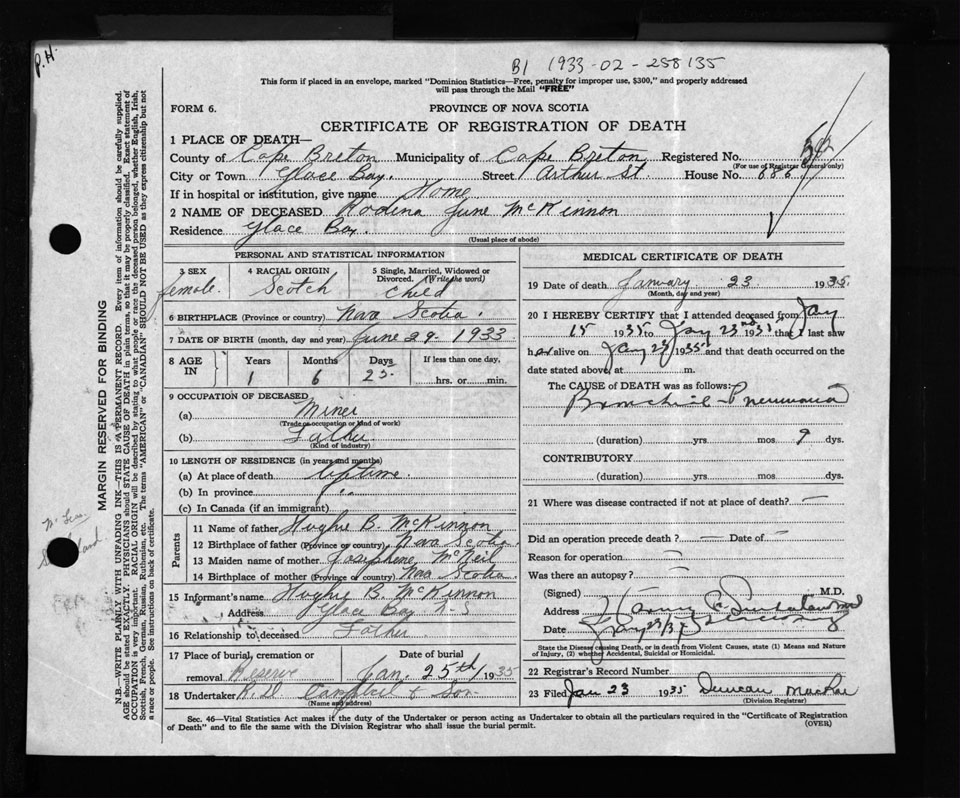 P.H.
B1 1933-02-258135
This form if placed in an envelope, marked "Dominion Statistics—Free, penalty for improper use, $300," and properly addressed
will pass through the Mail "FREE"
FORM 6. PROVINCE OF NOVA SCOTIA
CERTIFICATE OF REGISTRATION OF DEATH
1 PLACE OF DEATH—
County of Cape Breton Municipality of Cape Breton Registered No.
(For use of Registrar General only)
City or Town Glace Bay. Street Arthur St. House No. 686
If in hospital or institution, give name Home
2 NAME OF DECEASED Rodena June McKinnon
Residence Glace Bay.
(Usual place of abode)
PERSONAL AND STATISTICAL INFORMATION
3 SEX 4 RACIAL ORIGIN 5 Single, Married, Widowed or
Divorced. (Write the word)
female. Scotch Child
6 BIRTHPLACE (Province or country) Nova Scotia.
7 DATE OF BIRTH (month, day and year) June 29, 1933
8 AGE IN Years Months Days If less than one day,
1 6 25. hrs. or min.
9 OCCUPATION OF DECEASED
(a) Miner
(Trade or occupation or kind of work)
(b) Father
(Kind of industry)
10 LENGTH OF RESIDENCE (in years and months)
(a) At place of death lifetime.
(b) In province "
(c) In Canada (if an immigrant)
Parents
11 Name of father Hughie B. McKinnon
12 Birthplace of father (Province or country) Nova Scotia.
13 Maiden name of mother Josephine McNeil
14 Birthplace of mother (Province or country) Nova Scotia.
15 Informant's name Hughie B. McKinnon
Address Glace Bay N-S
16 Relationship to deceased Father
17 Place of burial, cremation or Date of burial
removal Reserve Jan. 25th 1935
18 Undertaker Campbell & Son
(Name and address)
MEDICAL CERTIFICATE OF DEATH
19 Date of death January 23 1935.
(Month, day and year)
20 I HEREBY CERTIFY that I attended deceased from Jay
15 1935 to Jay 23 1935 that I last saw
her alive on Jay 23 1935 and that death occurred on the
date stated above, at m.
The CAUSE of DEATH was as follows:
Bronchial-Pneumonia
(duration) yrs. mos 9 dys.
CONTRIBUTORY
(duration) yrs. mos. dys.
21 Where was disease contracted if not at place of death? —
Did an operation precede death? — Date of —
Reason for operation —
Was there an autopsy? —
(Signed) M.D.
Address
Date
State the Disease causing Death, or in death from Violent Causes, state (1) Means and Nature
of Injury, (2) whether Accidental, Suicidal or Homicidal.
22 Registrar's Record Number
23 Filed Jan 23 1935 Duncan MacRae
(Division Registrar)
Sec. 46—Vital Statistics Act makes it the duty of the Undertaker or person acting as Undertaker to obtain all the particulars required in the "Certificate of Registration
of Death" and to file the same with the Division Registrar who shall issue the burial permit. (OVER)
MARGIN RESERVED FOR BINDING
N.B.—WRITE PLAINLY WITH UNFADING INK—THIS IS A PERMANENT RECORD. Every item of information should be carefully supplied.
AGE should be stated EXACTLY. PHYSICIANS should STATE CAUSE OF DEATH in plain terms, so that it may be properly classified. Exact statement of
OCCUPATION is very important. RACIAL ORIGIN will be described by stating to what people or race the deceased person belonged, whether English, Irish,
Scottish, French, German, Russian, Ruthenian, etc. The terms "AMERICAN" or "CANADIAN" SHOULD NOT BE USED as they express citizenship but not
a race or people. See instructions on back of certificate.